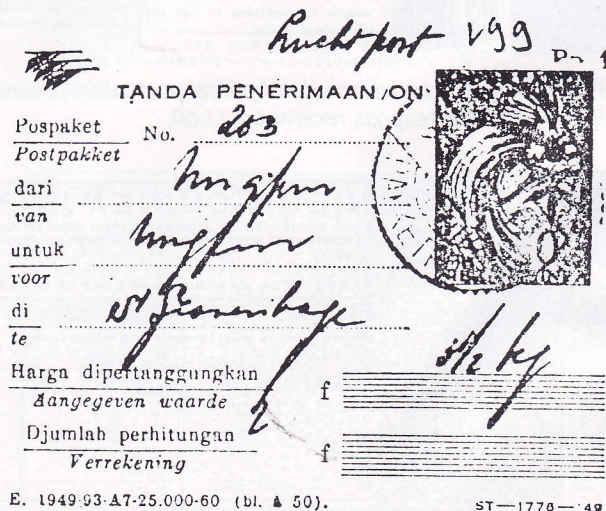 Luchtpost V99
TANDA PENERIMAAN ON
Pospaket No. 263
Postpakket
dari
van
untuk
voor
di
te
Harga dipertanggungkan f
Aangegeven waarde
Djumlah perhitungan f
Verrekening
E. 1949-93-A7-25.000-60 (bl. à 50). ST—1776—'49